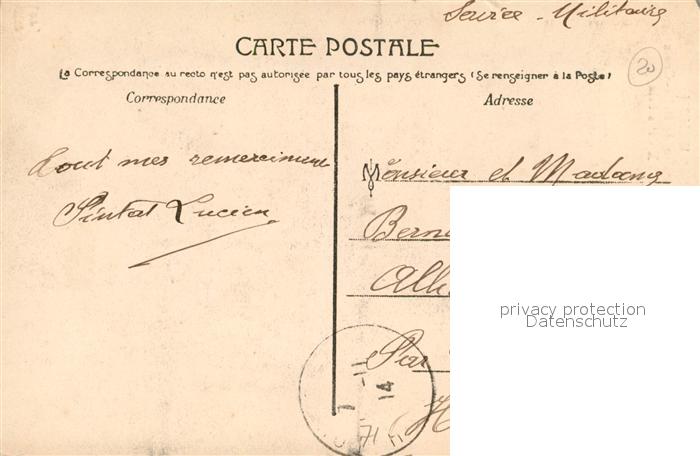 Service - Militaire
CARTE POSTALE
La Correspondance au recto n'est pas autorisée par tous les pays étrangers (Se renseigner à la Poste)
20
Correspondance
Adresse
tout mes remerciment
Pintat Lucien
Monsieur et Madame
Bern
Alb
privacy protection
Datenschutz
Par
11
14
H